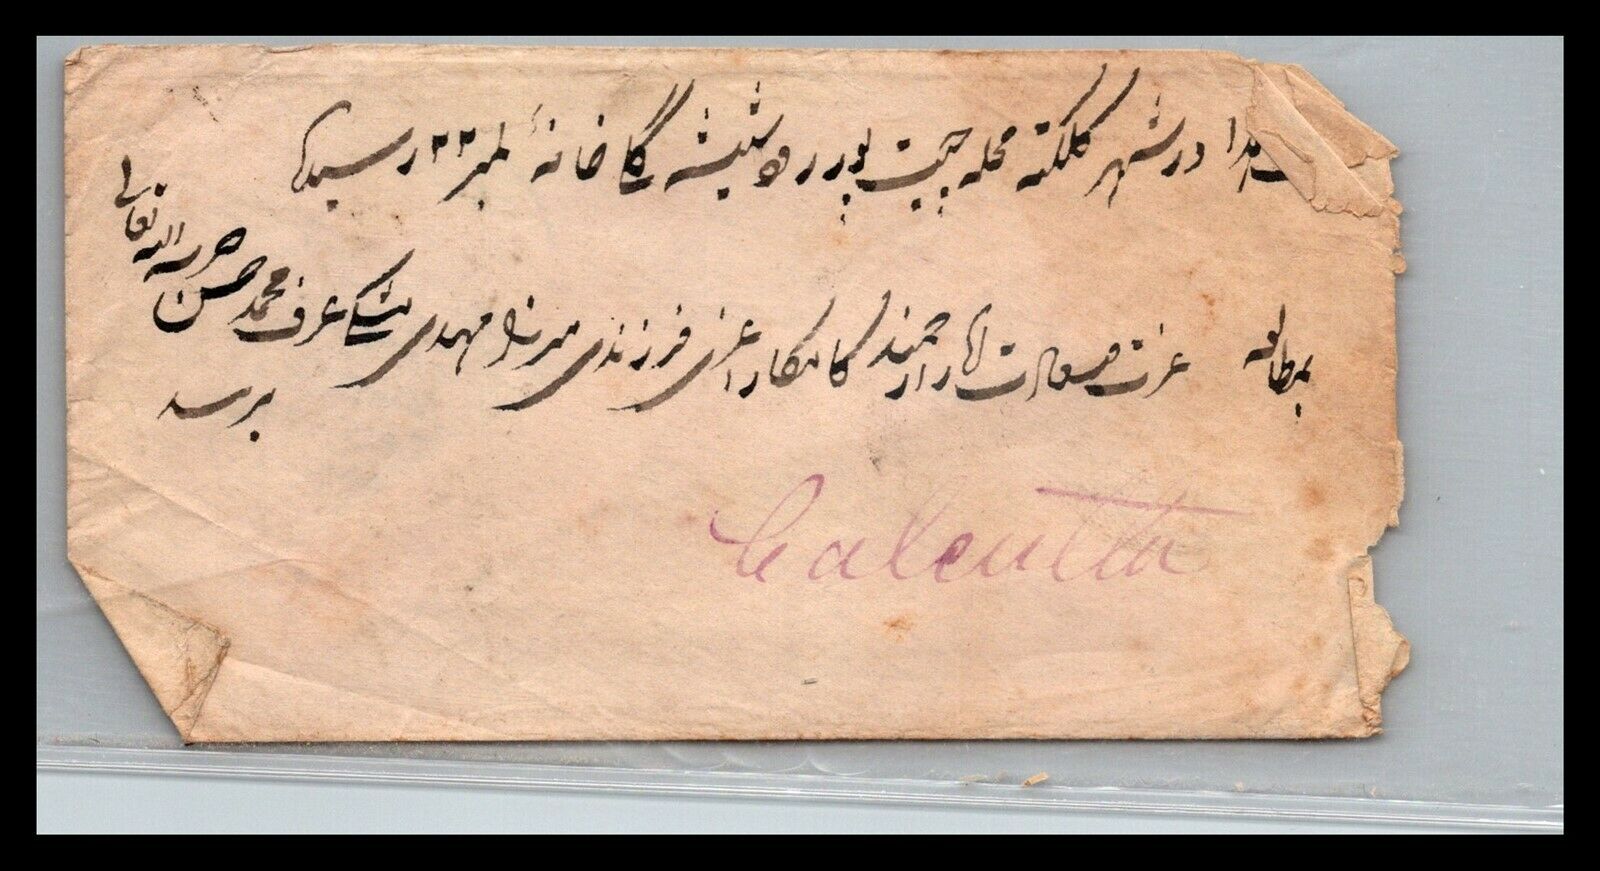 در شهر کلکته محله چیت پور رود شیشه گلی خانهٔ نمبر ۲۲ رسیده
بمطالعه عزت و سعادت آثار ارجمند کامکار اعزی فرزندی میرزا مهدی مشکی عرف محمد حسن حرسه الله تعالی
برسد
Calcutta